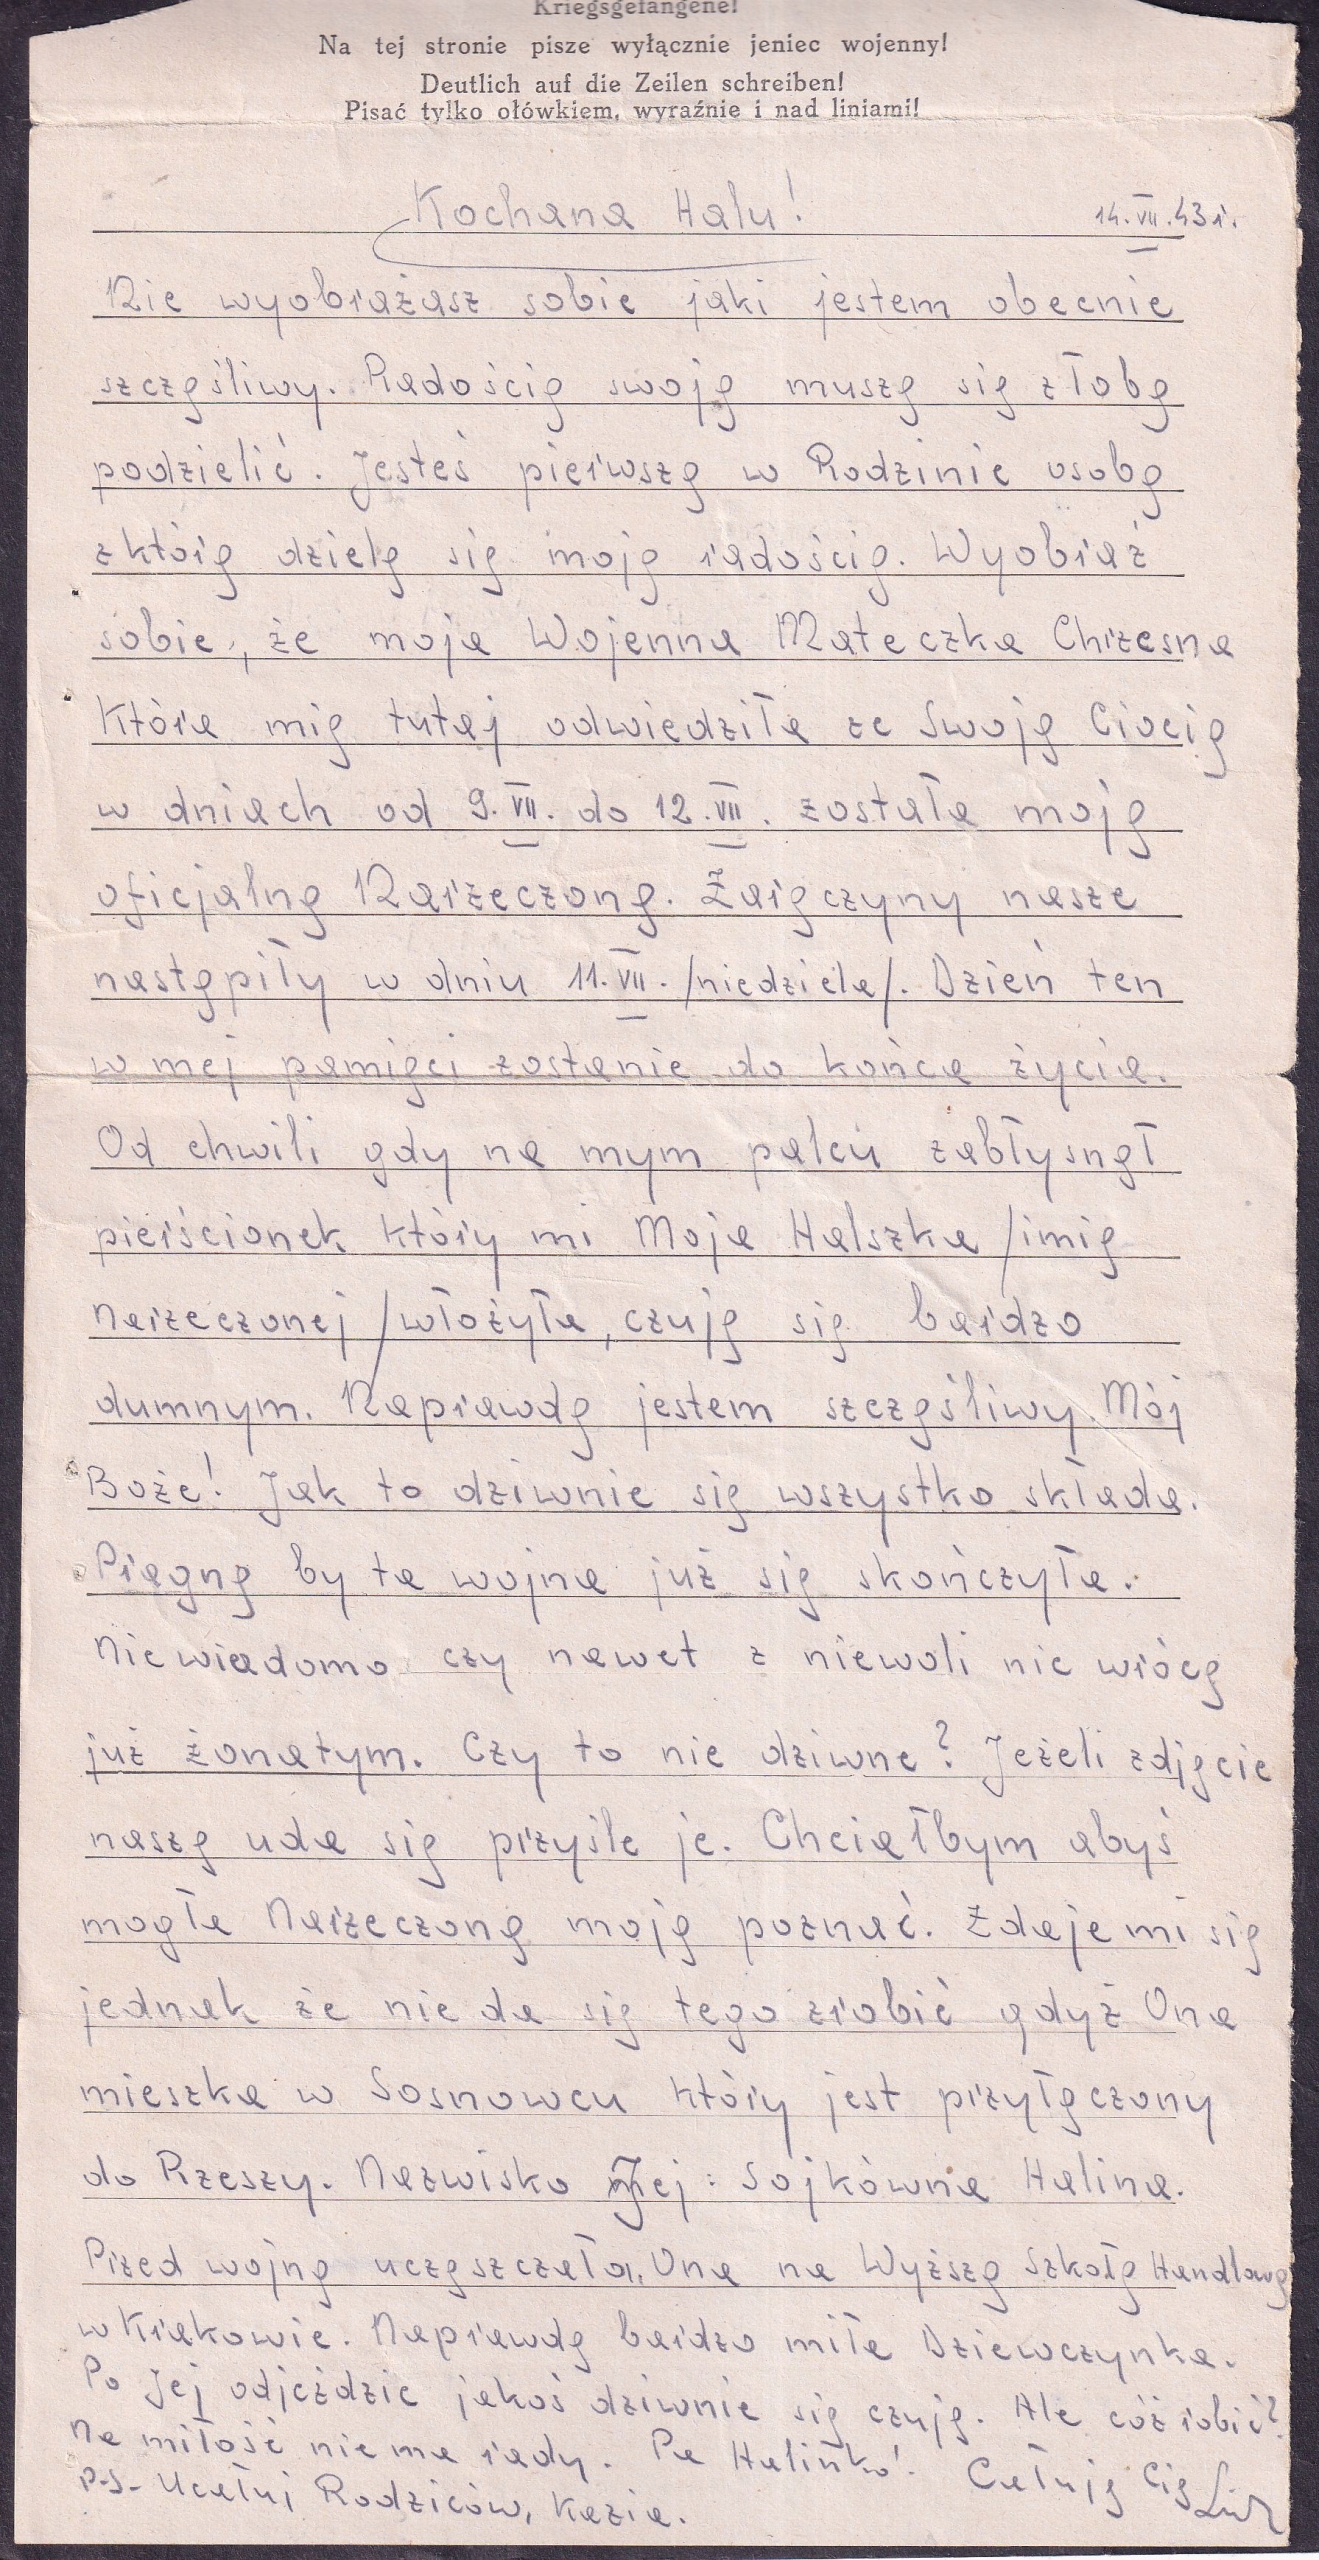 Kriegsgefangene!
Na tej stronie pisze wyłącznie jeniec wojenny!
Deutlich auf die Zeilen schreiben!
Pisać tylko ołówkiem, wyraźnie i nad liniami!
Kochana Halu! 14.VII.43r.
Nie wyobrażasz sobie jaki jestem obecnie
szczęśliwy. Radością swoją muszę się z Tobą
podzielić. Jesteś pierwszą w Rodzinie osobą
z którą dzielę się moją radością. Wyobraź
sobie, że moja Wojenna Mateczka Chrzesna
Która mię tutaj odwiedziła ze Swoją Ciocią
w dniach od 9.VII. do 12.VII. została moją
oficjalną Narzeczoną. Zaręczyny nasze
nastąpiły w dniu 11.VII. /niedziela/. Dzień ten
w mej pamięci zostanie do końca życia.
Od chwili gdy na mym palcu zabłysnął
pierścionek który mi Moja Halszka /imię
narzeczonej/ włożyła, czuję się bardzo
dumnym. Naprawdę jestem szczęśliwy. Mój
Boże! Jak to dziwnie się wszystko składa.
Piagnę by ta wojna już się skończyła.
Niewiadomo czy nawet z niewoli nie wrócę
już żonatym. Czy to nie dziwne? Jeżeli zdjęcie
naszę uda się przyśle je. Chciałbym abyś
mogła Narzeczoną moją poznać. Zdaje mi się
jednak że nie da się tego zrobić gdyż Ona
mieszka w Sosnowcu który jest przyłączony
do Rzeszy. Nazwisko Jej: Sojkówna Halina.
Przed wojną uczęszczała Ona na Wyższą Szkołę Handlową
w Krakowie. Naprawdę bardzo miła Dziewczynka.
Po Jej odjeździe jakoś dziwnie się czuję. Ale cóż robić?
Na miłość nie ma rady. Pa Halinko! Całuję Cię
P.S. Ucałuj Rodziców, Kazia.